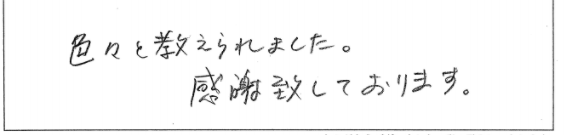 色々と教えられました。
感謝致しております。